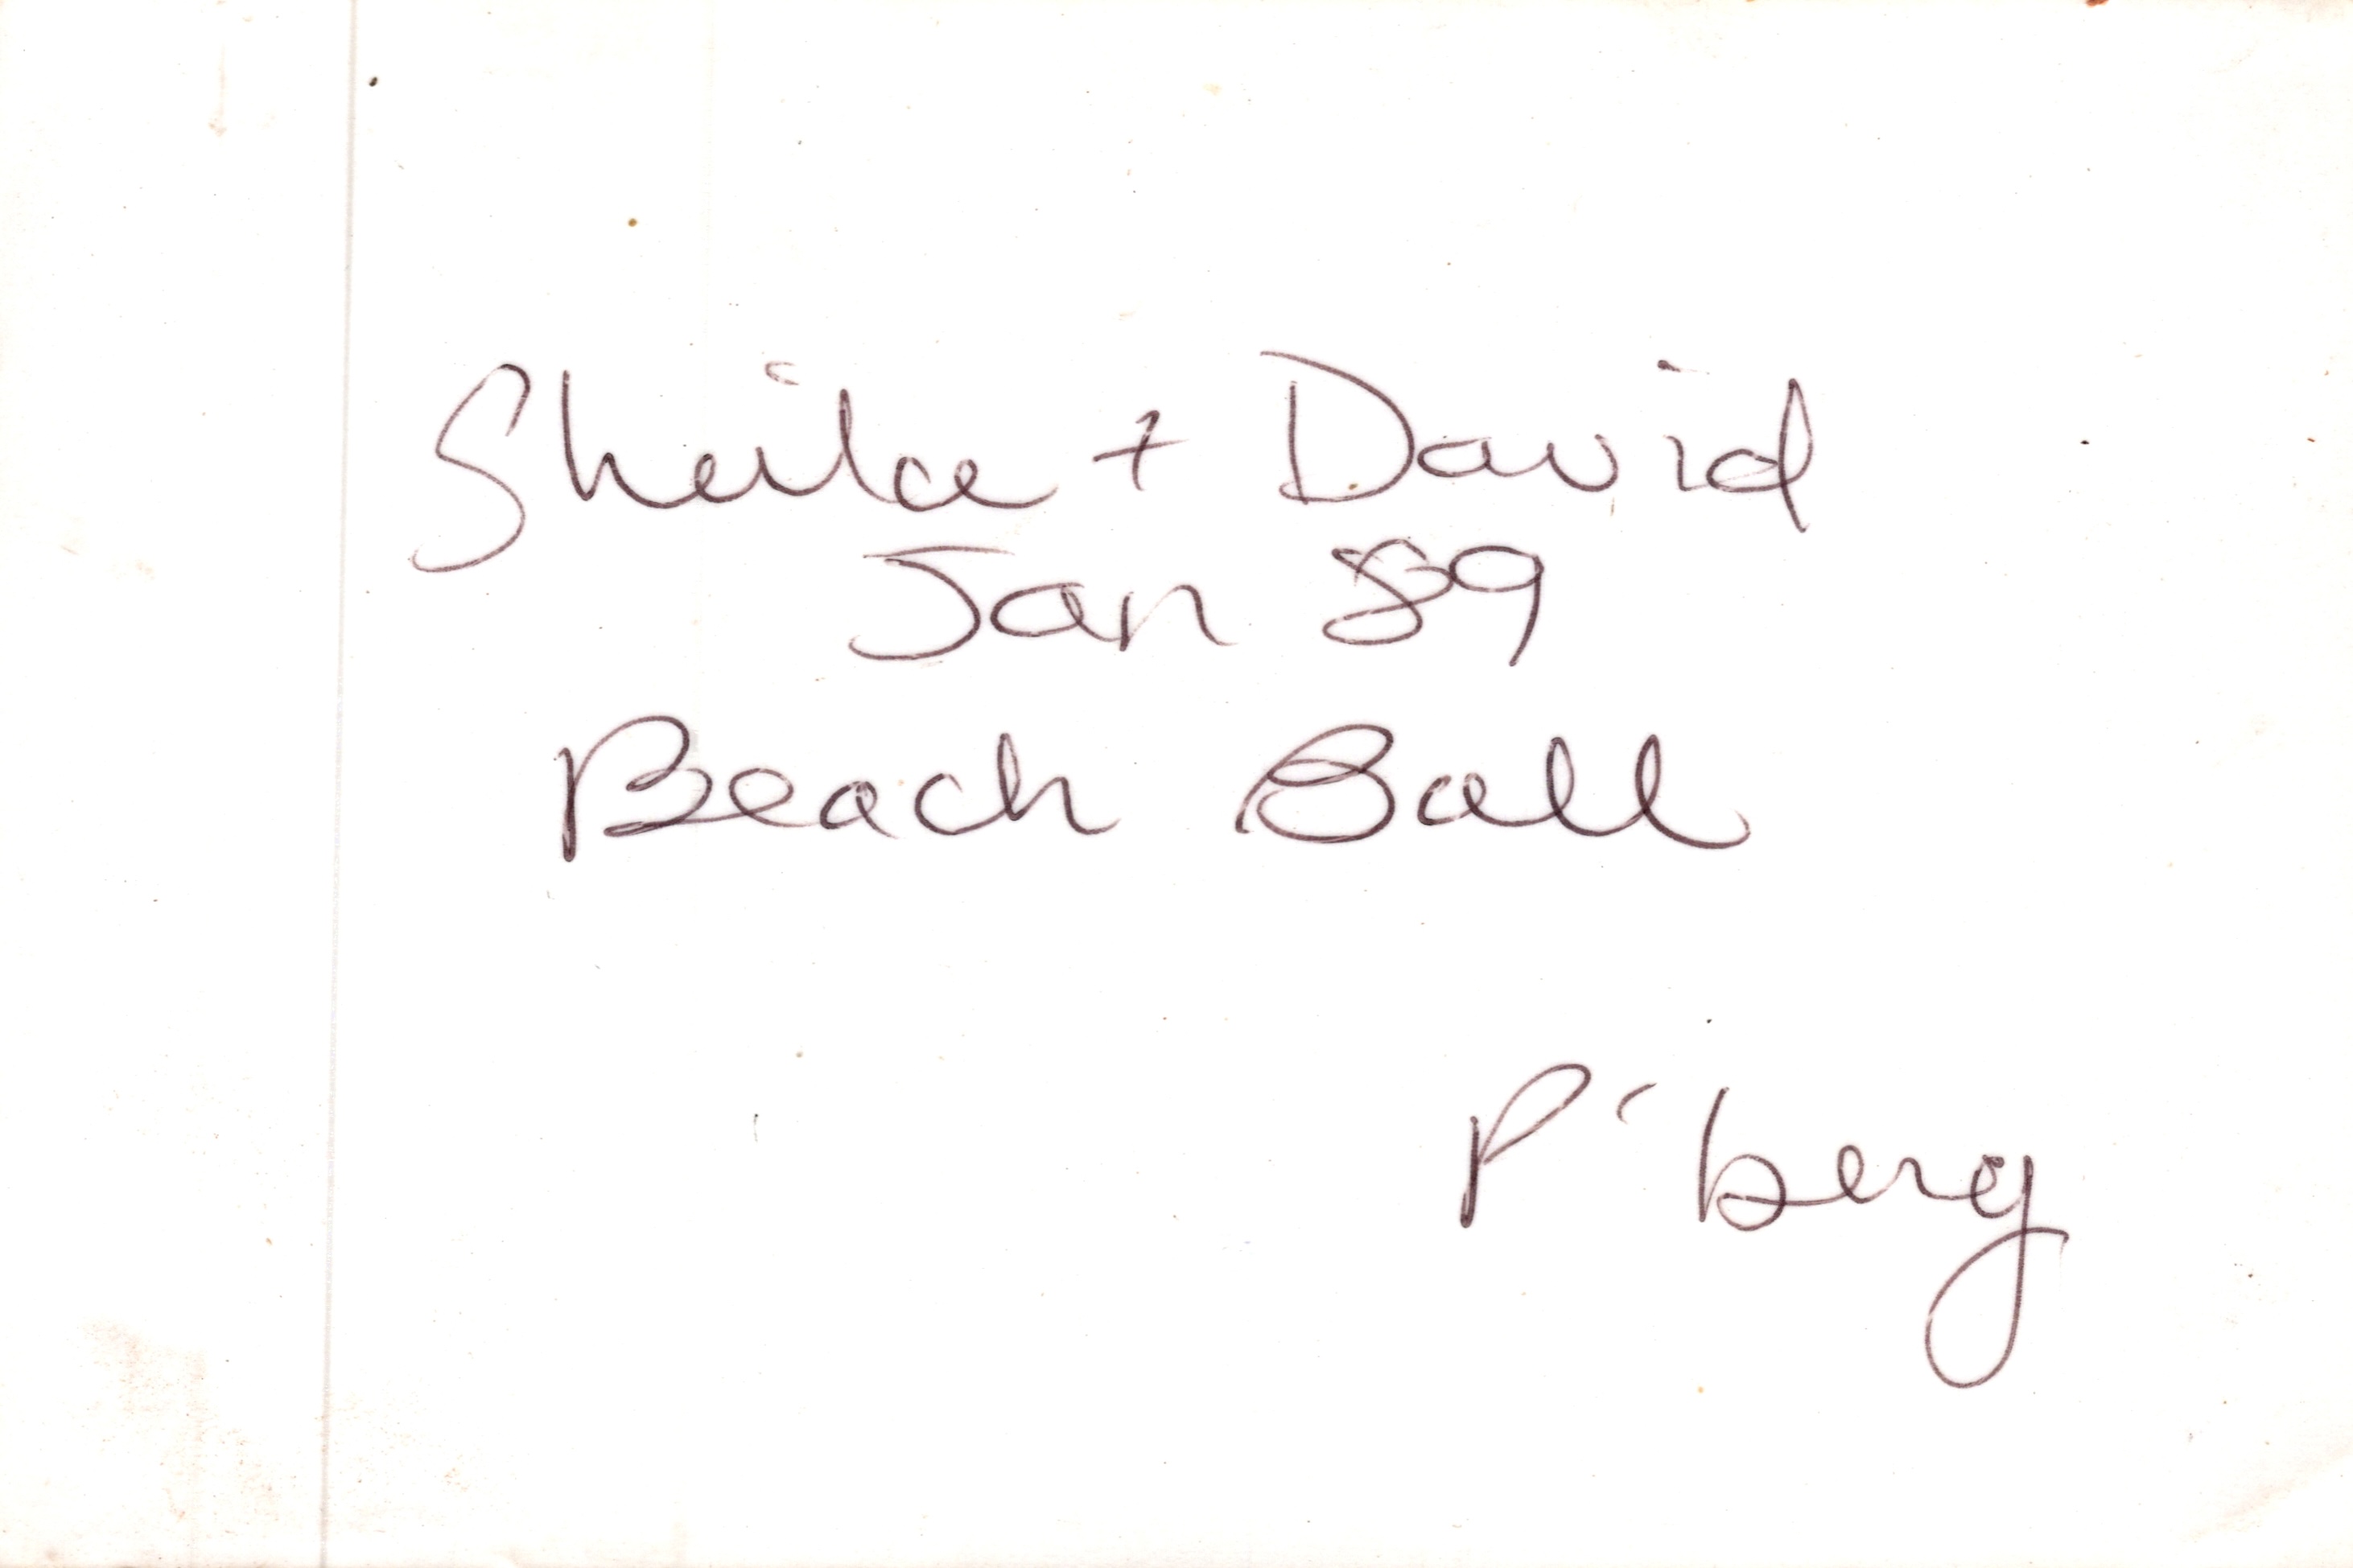 Sheila + David
Jan 89
Beach Ball
P'berg